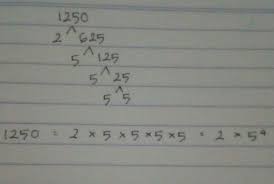 1250
2 625
5 125
5 25
5 5
1250 = 2 × 5 × 5 × 5 × 5 = 2 × 5⁴